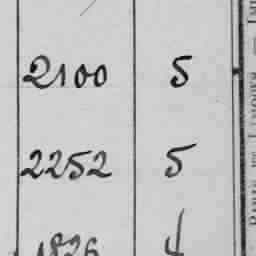 2100 5
2252 5
1826 4